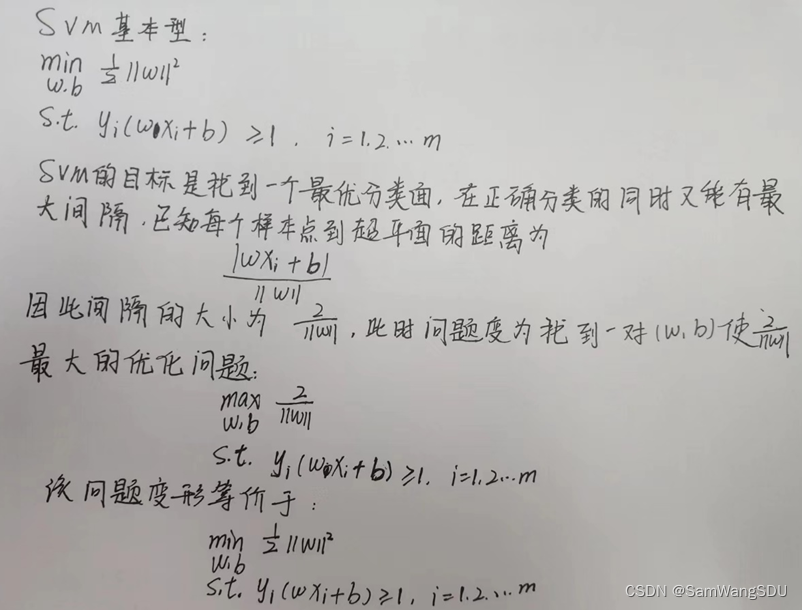 SVM基本型：
min 1/2 ||w||²
w.b
s.t. yi(wxi+b) ≥1, i=1.2...m
SVM的目标是找到一个最优分类面，在正确分类的同时又能有最
大间隔，已知每个样本点到超平面的距离为
|wxi+b|
||w||
因此间隔的大小为 2/||w||，此时问题变为找到一对(w,b)使2/||w||
最大的优化问题：
max 2/||w||
w.b
s.t. yi(wxi+b) ≥1, i=1,2...m
该问题变形等价于：
min 1/2 ||w||²
w.b
s.t. yi(wxi+b) ≥1, i=1,2...m
CSDN @SamWangSDU